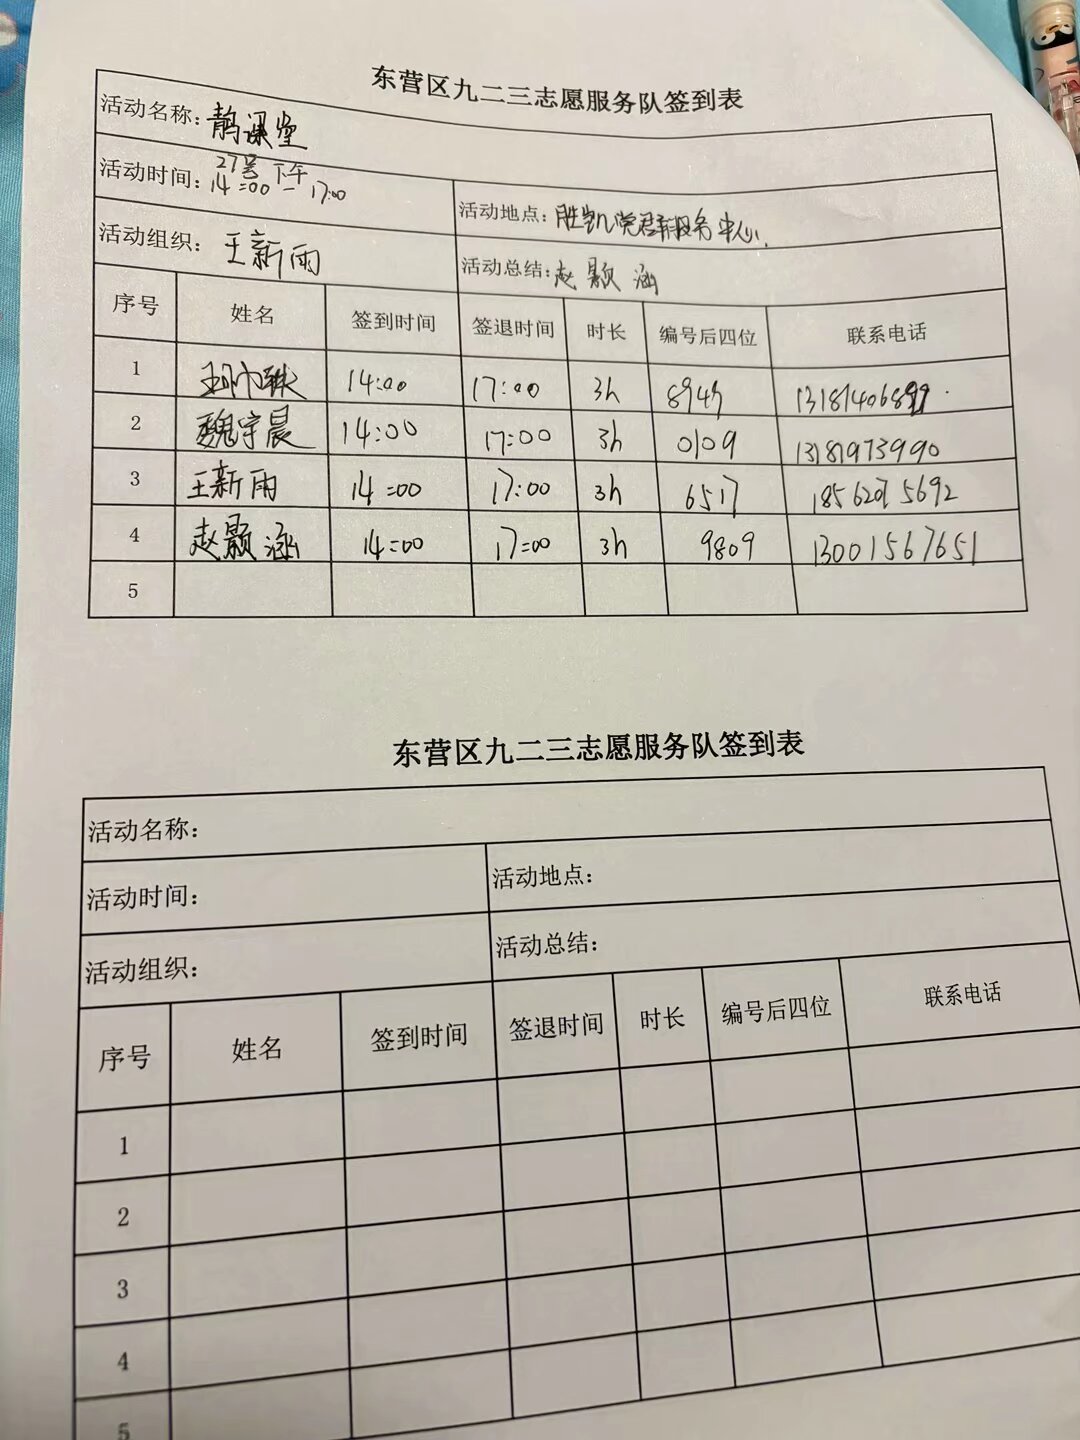 东营区九二三志愿服务队签到表
活动名称：鹊课堂
活动时间：27号下午 14:00—17:00 活动地点：胜凯党群服务中心
活动组织：王新雨 活动总结：赵颢涵
序号 姓名 签到时间 签退时间 时长 编号后四位 联系电话
1 14:00 17:00 3h
2 魏宇晨 14:00 17:00 3h 0109 13181973990
3 王新雨 14:00 17:00 3h 6517
4 赵颢涵 14:00 17:00 3h 9809 13001567651
5
东营区九二三志愿服务队签到表
活动名称：
活动时间： 活动地点：
活动组织： 活动总结：
序号 姓名 签到时间 签退时间 时长 编号后四位 联系电话
1
2
3
4
5